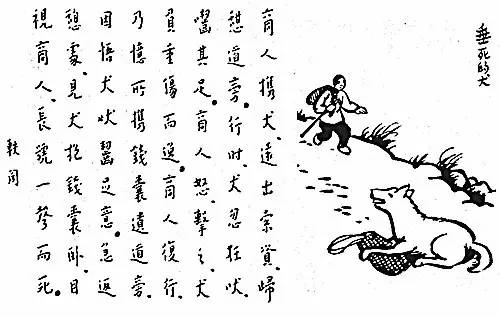 垂死的犬
商人携犬、遠出索資、歸
憩道旁、行时、犬忽狂吠、
嚙其足。商人怒、擊之、犬
負重傷而逸。商人復行、
乃憶所携錢囊遺道旁、
因悟犬吠齧足意。急返
憩處、見犬抱錢囊臥、目
視商人、長號一聲而死。
軼聞